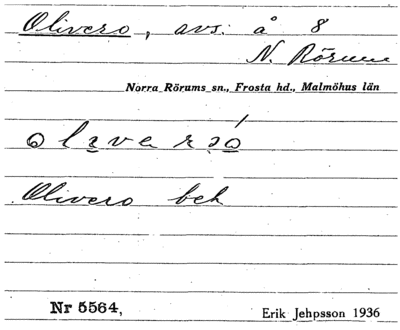 Olivero, avs. å 8
N. Rörum
Norra Rörums sn., Frosta hd., Malmöhus län
Olivero beh
Nr 5564,
Erik Jehpsson 1936